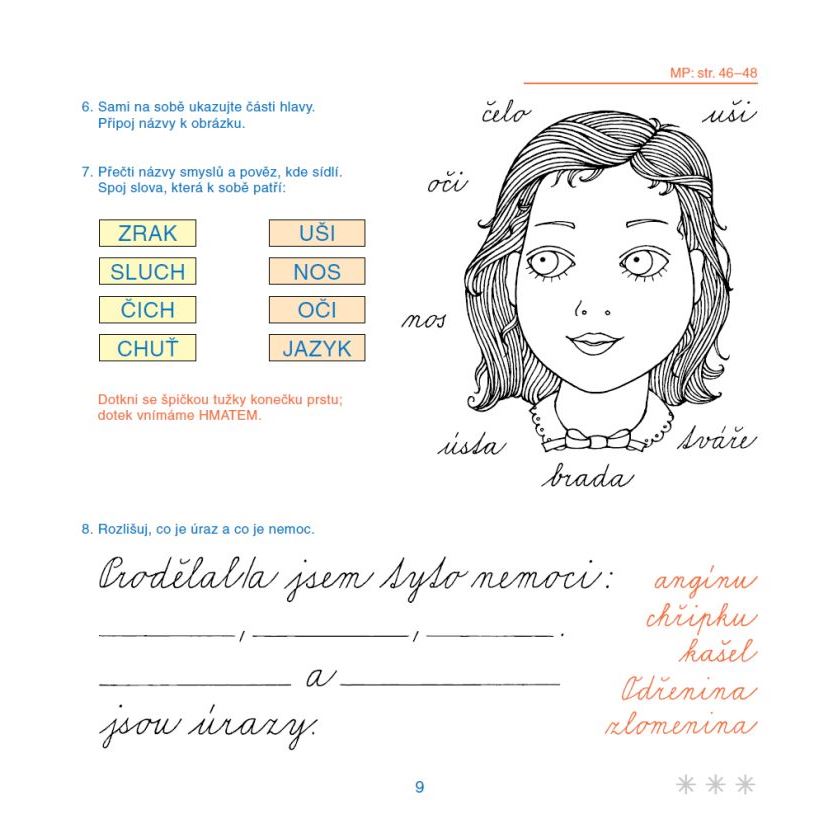 MP: str. 46–48
6. Sami na sobě ukazujte části hlavy.
Připoj názvy k obrázku.
7. Přečti názvy smyslů a pověz, kde sídlí.
Spoj slova, která k sobě patří:
ZRAK UŠI
SLUCH NOS
ČICH OČI
CHUŤ JAZYK
Dotkni se špičkou tužky konečku prstu;
dotek vnímáme HMATEM.
čelo uši
oči
nos
ústa tváře
brada
8. Rozlišuj, co je úraz a co je nemoc.
Prodělal/a jsem tyto nemoci:
, , .
a
jsou úrazy.
angínu
chřipku
kašel
Odřenina
zlomenina
9